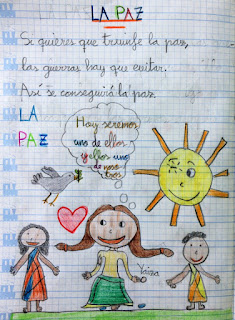 LA PAZ
Si quieres que triunfe la paz,
las guerras hay que evitar.
Así se conseguirá la paz.
LA
PAZ
Hoy seremos
uno de ellos
y ellos uno
de noso
tros
Yaiza